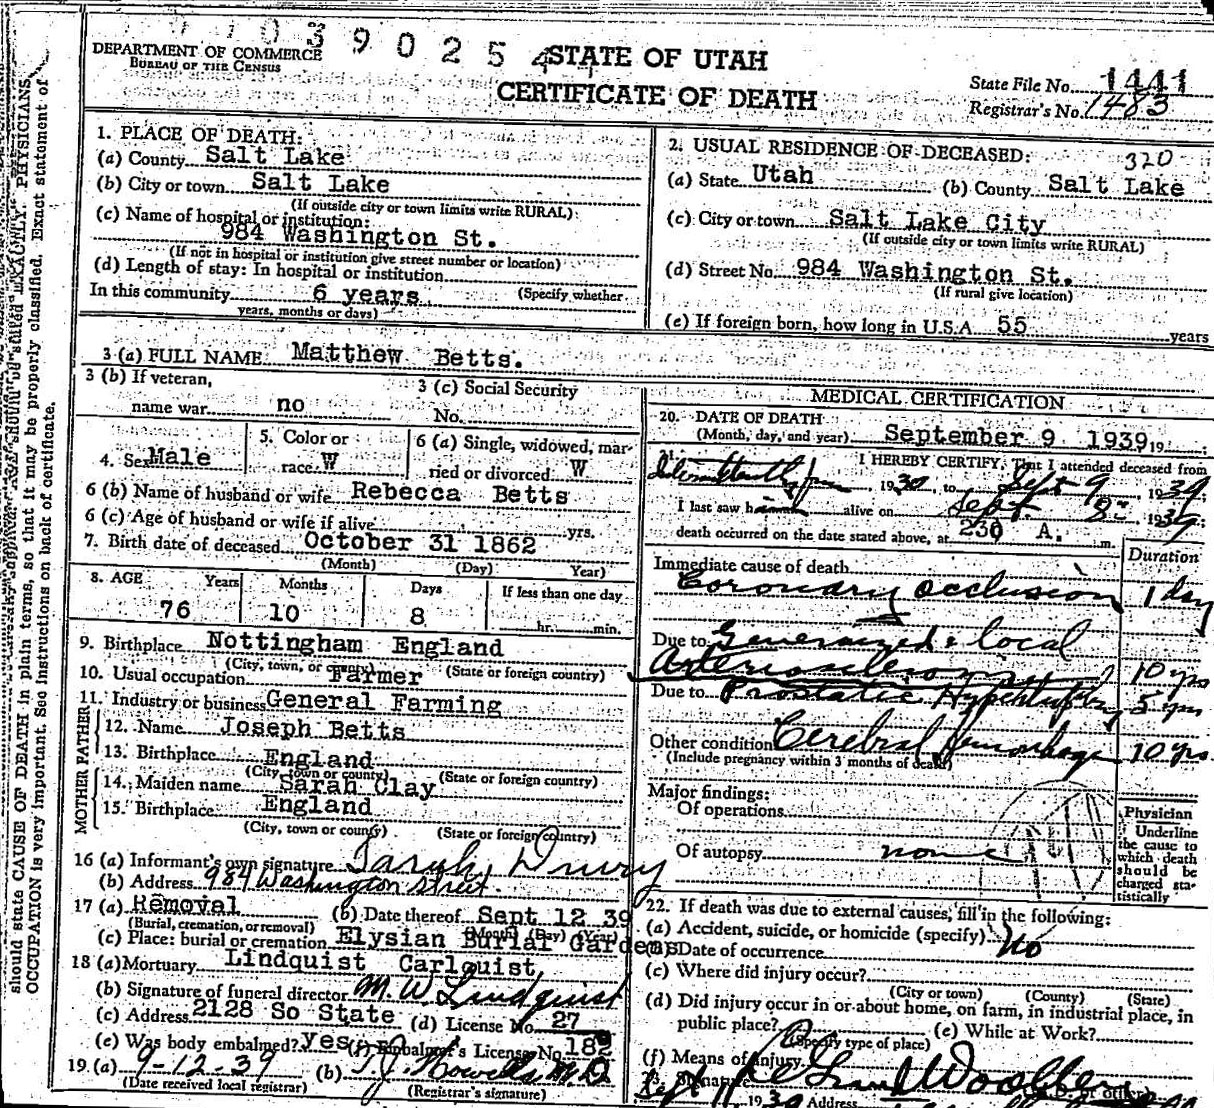 39025
DEPARTMENT OF COMMERCE
BUREAU OF THE CENSUS
STATE OF UTAH
CERTIFICATE OF DEATH
State File No. 1441
Registrar's No. 1483
1. PLACE OF DEATH:
(a) County Salt Lake
(b) City or town Salt Lake
(If outside city or town limits write RURAL)
(c) Name of hospital or institution:
984 Washington St.
(If not in hospital or institution give street number or location)
(d) Length of stay: In hospital or institution
In this community 6 years (Specify whether
years, months or days)
2. USUAL RESIDENCE OF DECEASED: 320
(a) State Utah (b) County Salt Lake
(c) City or town Salt Lake City
(If outside city or town limits write RURAL)
(d) Street No. 984 Washington St.
(If rural give location)
(e) If foreign born, how long in U.S.A. 55 years
3 (a) FULL NAME Matthew Betts.
3 (b) If veteran,
name war no
3 (c) Social Security
No.
4. Sex Male
5. Color or
race W
6 (a) Single, widowed, mar-
ried or divorced W
6 (b) Name of husband or wife Rebecca Betts
6 (c) Age of husband or wife if alive yrs.
7. Birth date of deceased October 31 1862
(Month) (Day) Year)
8. AGE Years Months Days If less than one day
76 10 8 hr. min.
9. Birthplace Nottingham England
(City, town, or county) (State or foreign country)
10. Usual occupation Farmer
11. Industry or business General Farming
FATHER
12. Name Joseph Betts
13. Birthplace England
(City, town or county) (State or foreign country)
MOTHER
14. Maiden name Sarah Clay
15. Birthplace England
(City, town or county) (State or foreign country)
16 (a) Informant's own signature Sarah Drury
(b) Address 984 Washington Street.
17 (a) Removal (b) Date thereof Sept 12 39
(Burial, cremation, or removal) (Month) (Day) (Year)
(c) Place: burial or cremation Elysian Burial Gardens
18 (a) Mortuary Lindquist Carlquist
(b) Signature of funeral director M. W. Lindquist
(c) Address 2128 So State (d) License No. 27
(e) Was body embalmed? yes (f) Embalmer's License No. 182
19. (a) 9-12-39 (b) T. J. Howells M.D
(Date received local registrar) (Registrar's signature)
MEDICAL CERTIFICATION
20. DATE OF DEATH
(Month, day, and year) September 9 1939, 19
I HEREBY CERTIFY, That I attended deceased from
, 1930, to Sept 9, 1939;
I last saw h alive on Sept. 8, 1939;
death occurred on the date stated above, at 230 A. m.
Duration
Immediate cause of death
Coronary occlusion 1 day
Due to Generalized & local
Arteriosclerosis 10 yrs
Due to Prostatic Hypertrophy 5 yrs
Other condition Cerebral Hemorrhage 10 yrs
(Include pregnancy within 3 months of death)
Major findings:
Of operations
Of autopsy none
Physician
Underline
the cause to
which death
should be
charged sta-
tistically
22. If death was due to external causes, fill in the following:
(a) Accident, suicide, or homicide (specify) No
(b) Date of occurrence
(c) Where did injury occur?
(City or town) (County) (State)
(d) Did injury occur in or about home, on farm, in industrial place, in
public place? (Specify type of place) (e) While at Work?
(f) Means of injury
Signature
Sept 1939 Address
should state CAUSE OF DEATH in plain terms, so that it may be properly classified. Exact statement of
OCCUPATION is very important. See instructions on back of certificate.